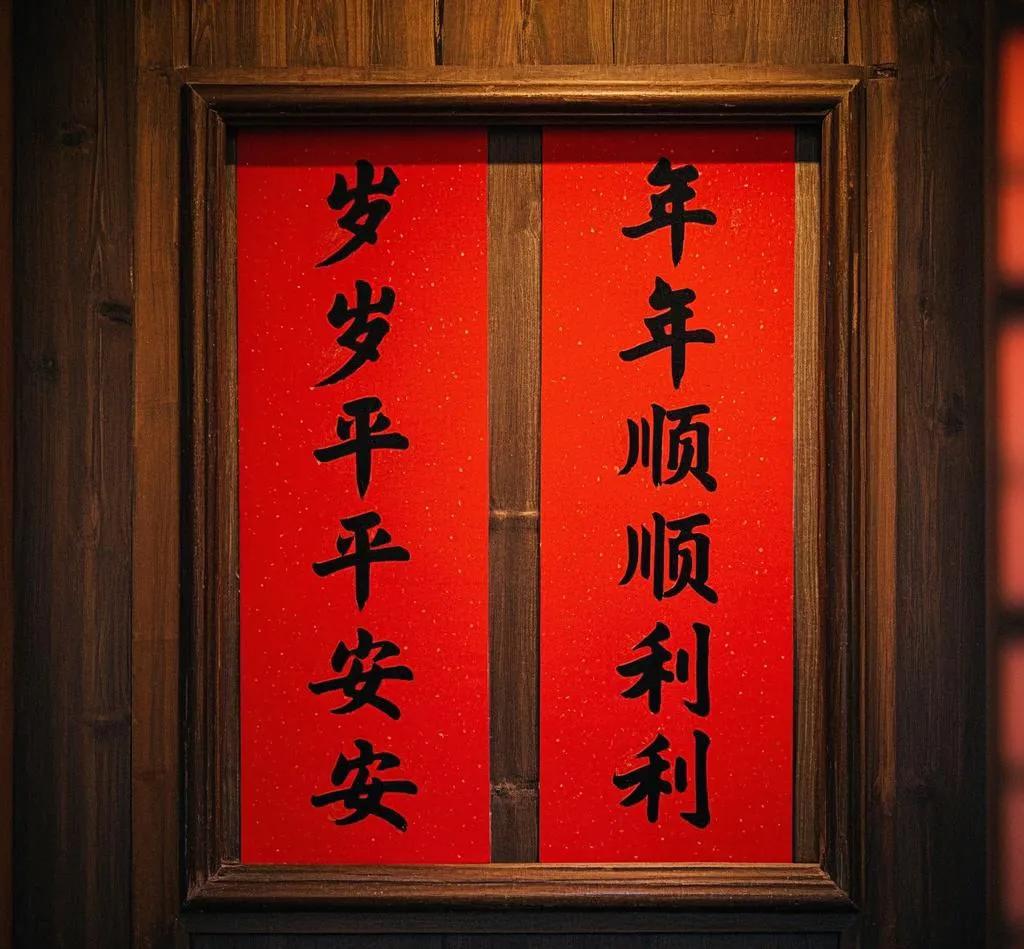 年年顺顺利利
岁岁平平安安